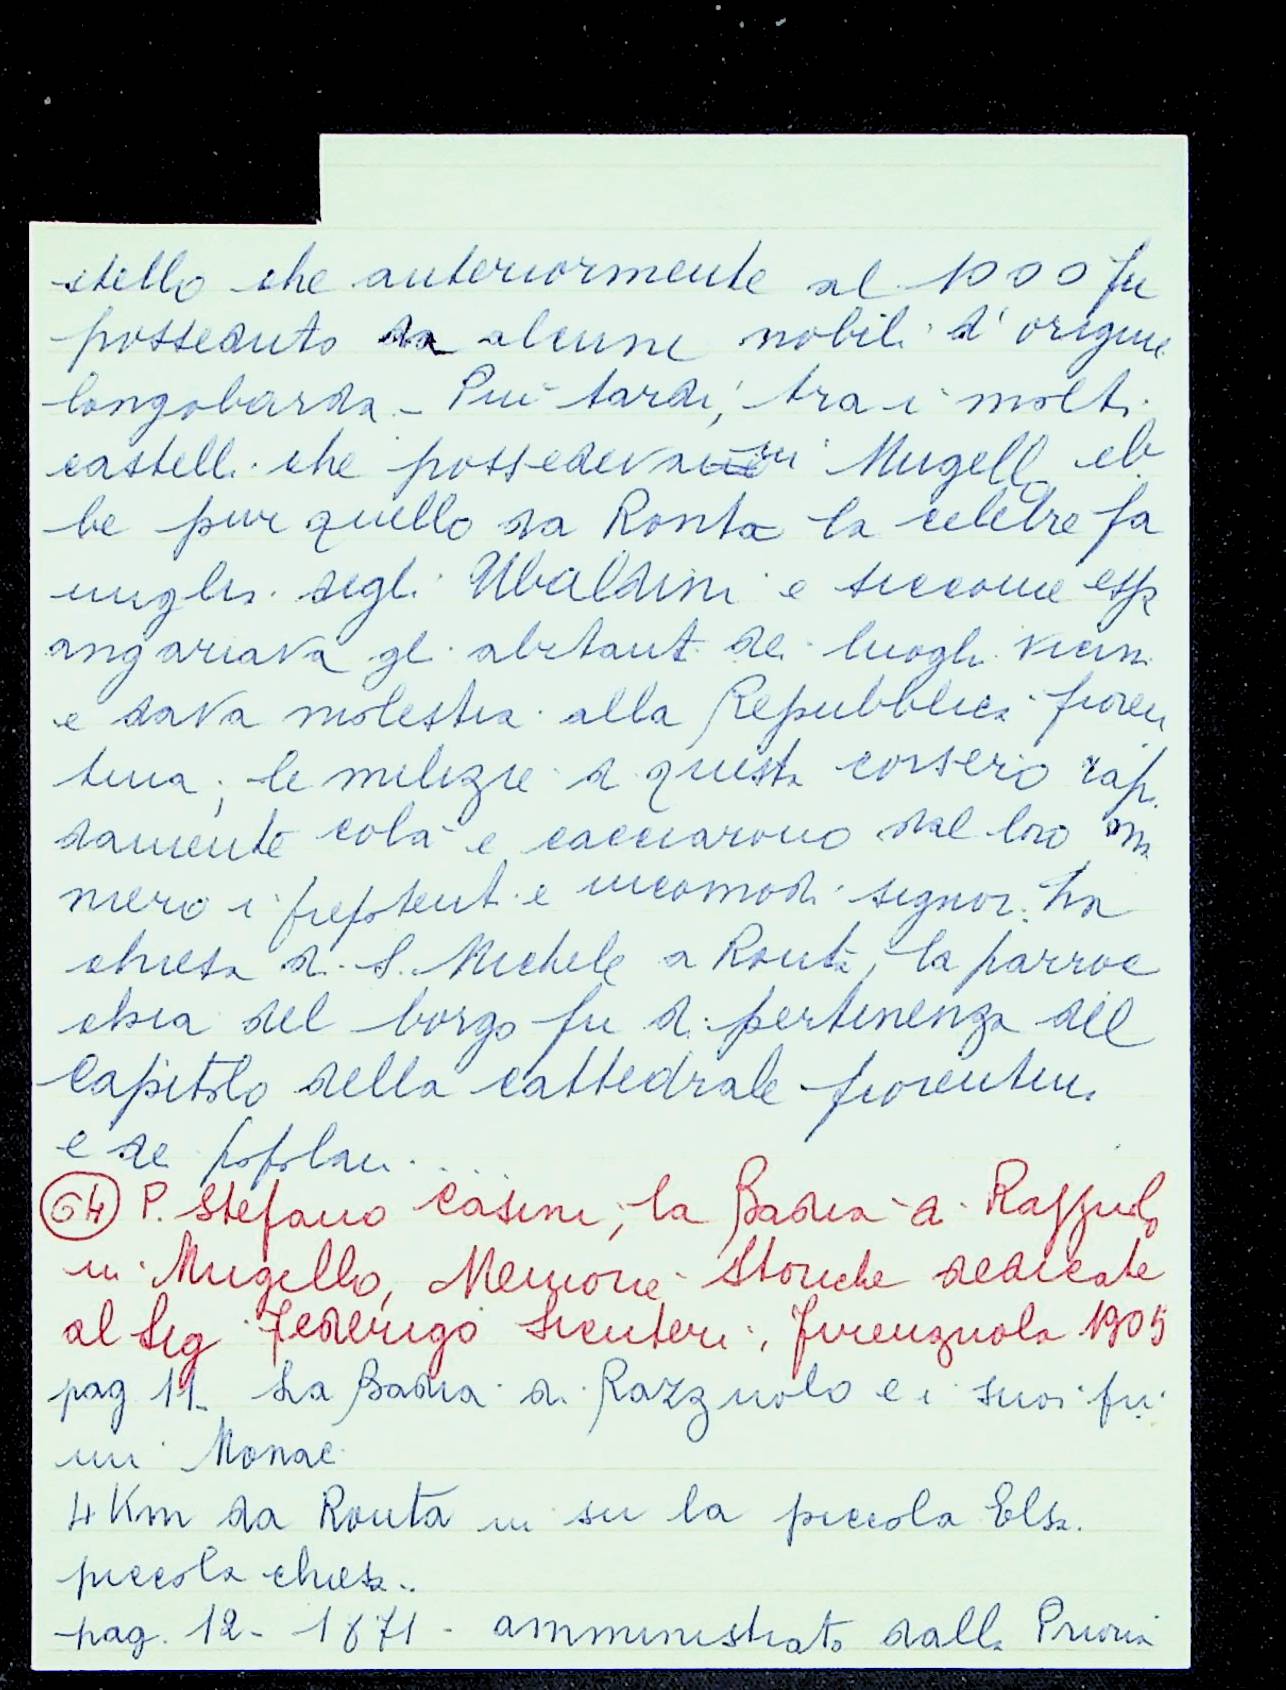 stello che anteriormente al 1000 fu
posseduto da alcuni nobili d'origine
longobarda - Più tardi, tra i molti
castelli che possedeva in Mugello eb
be pur quello da Ronta la celebre fa
miglia degli Ubaldini e siccome essa
angariava gli abitanti dei luoghi vicini
e dava molestia alla Repubblica fioren
tina, le milizie di questa corsero rapi
damente colà e cacciarono dal loro
niero i prepotenti e incomodi signori. La
chiesa di S. Michele a Ronta, la parroc
chia del borgo fu di pertinenza del
Capitolo della cattedrale fiorentina
e dei popolani....
64 P. Stefano Casini, la Badia a Razzuolo
in Mugello, Memorie Storiche dedicate
al Sig Federigo Scenteri, Firenzuola 1905
pag 11. La Badia di Razzuolo e i suoi pri
mi Monaci
4 Km da Ronta in su la piccola Elsa.
piccola chiesa..
pag. 12 - 1871 - amministrato dalla Prioria